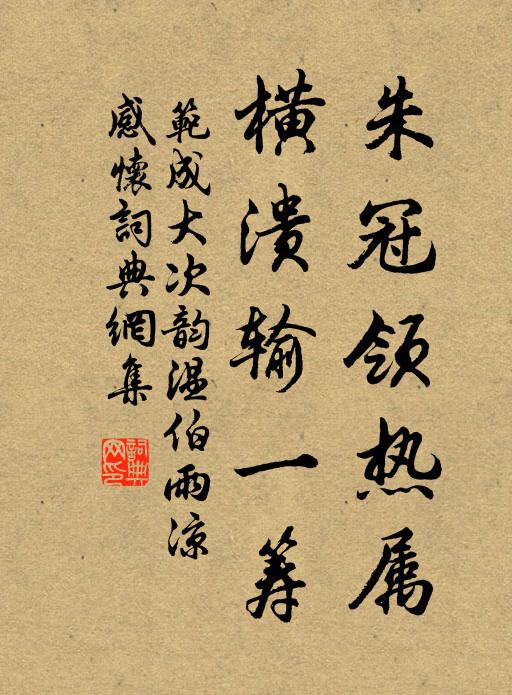 朱冠领热属
横溃输一筹
範成大次韵温伯雨凉
感懷詞典網集
詞典
网印